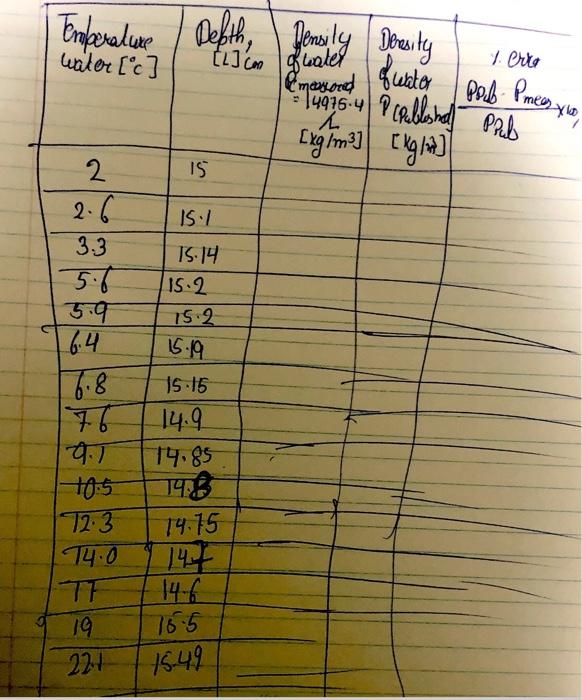 Temperature water [°C] Depth, [L] cm Density of water ρ measured = 14975.4 / L [kg/m³] Density of water ρ (Published) [kg/m³] % error ρPub - ρmeas / ρPub × 100
2 15
2.6 15.1
3.3 15.14
5.6 15.2
5.9 15.2
6.4 15.19
6.8 15.15
7.6 14.9
9.1 14.85
10.5 14.8
12.3 14.75
14.0 14.7
17 14.6
19 15.5
22.1 15.49